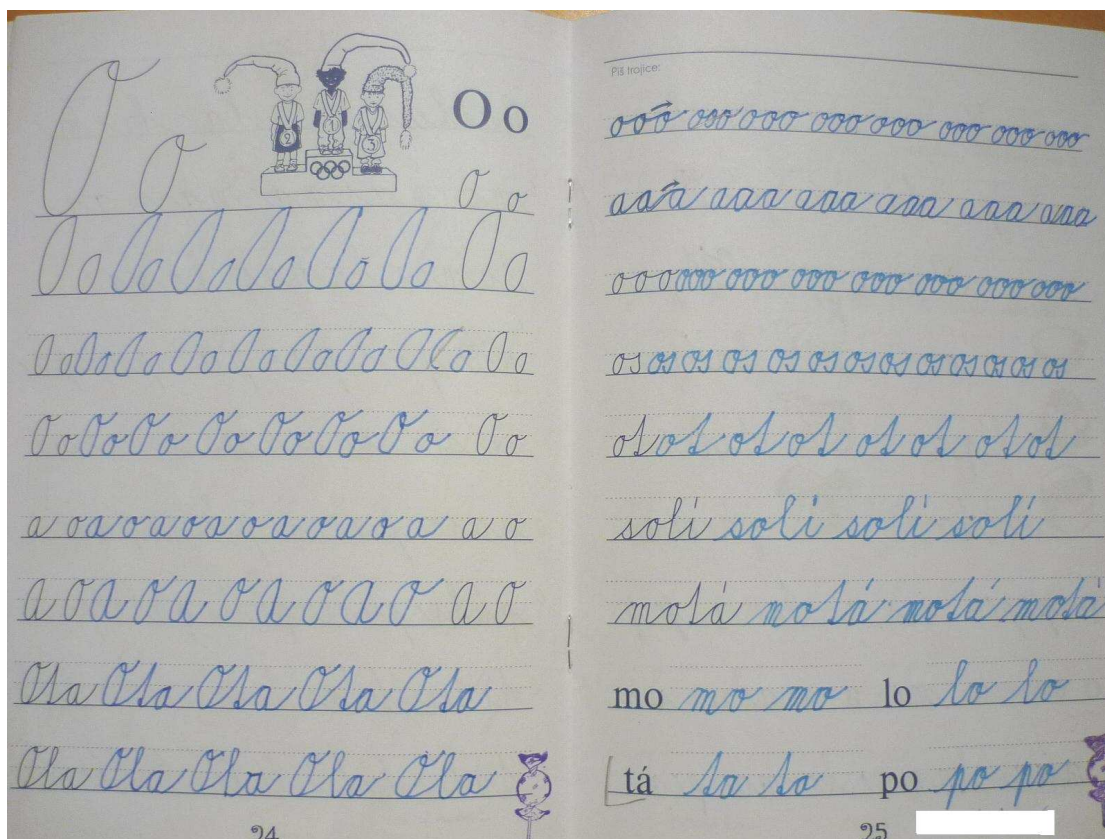 O o 2 1 3 O o
O o
Oo Oo Oo Oo Oo Oo Oo
Oo Oo Oo Oo Oo Oo Oo Oo Oo
Oo Oo Oo Oo Oo Oo Oo Oo
a o a o a o a o a o a o a a o
A O A O A O A O A O A O
Ota Ota Ota Ota Ota
Ola Ola Ola Ola Ola
24
Piš trojice:
ooo ooo ooo ooo ooo ooo ooo ooo
aaa aaa aaa aaa aaa aaa
ooo ooo ooo ooo ooo ooo ooo ooo
os os os os os os os os os os os os
ot ot ot ot ot ot ot ot
solí solí solí solí
motá motá motá motá
mo mo mo lo lo lo
tá ta ta po po po
25